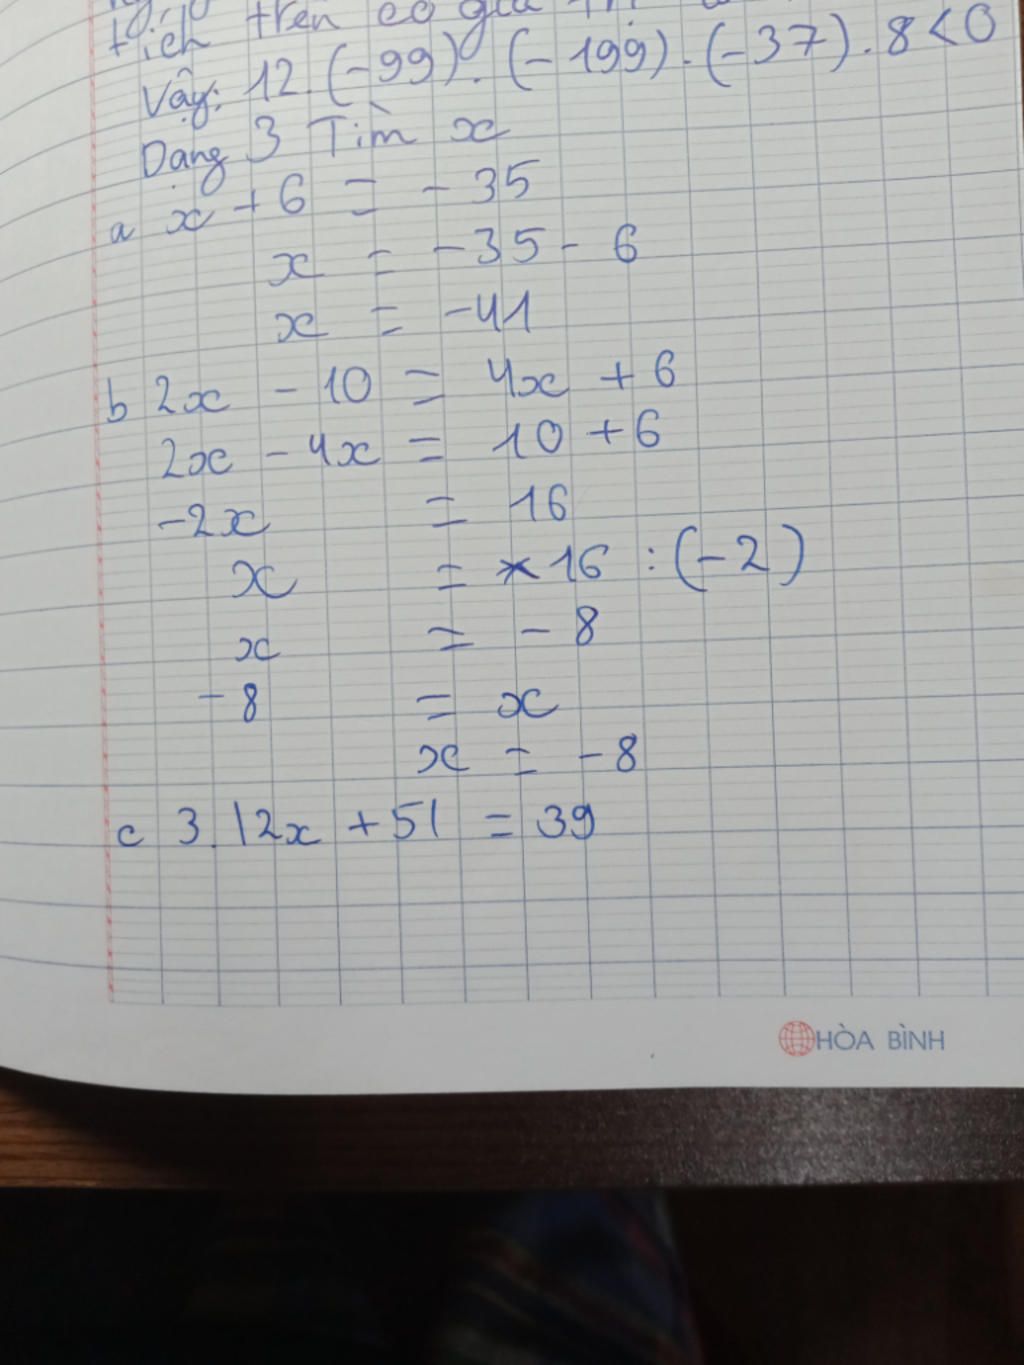 tích trên có giá
Vậy: 12.(-99).(-199).(-37).8<0
Dạng 3 Tìm x
a x + 6 = - 35
x = -35 - 6
x = -41
b 2x - 10 = 4x + 6
2x - 4x = 10 + 6
-2x = 16
x = 16 : (-2)
x = - 8
- 8 = x
x = - 8
c 3.|2x + 5| = 39
HÒA BÌNH